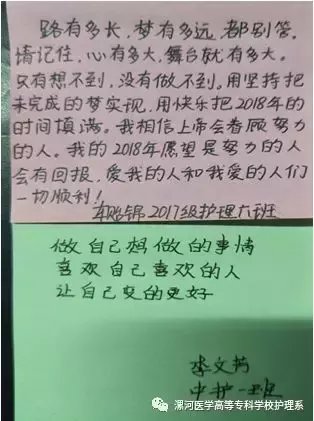 路有多长,梦有多远,都别管。
请记住,心有多大,舞台就有多大。
只有想不到,没有做不到。用坚持把
未完成的梦实现,用快乐把2018年的
时间填满。我相信上帝会眷顾努力
的人。我的2018年愿望是努力的人
会有回报,爱我的人和我爱的人们
一切顺利!
车贻锦2017级护理六班
做自己想做的事情
喜欢自己喜欢的人
让自己变的更好
李文芳
中护一班
漯河医学高等专科学校护理系